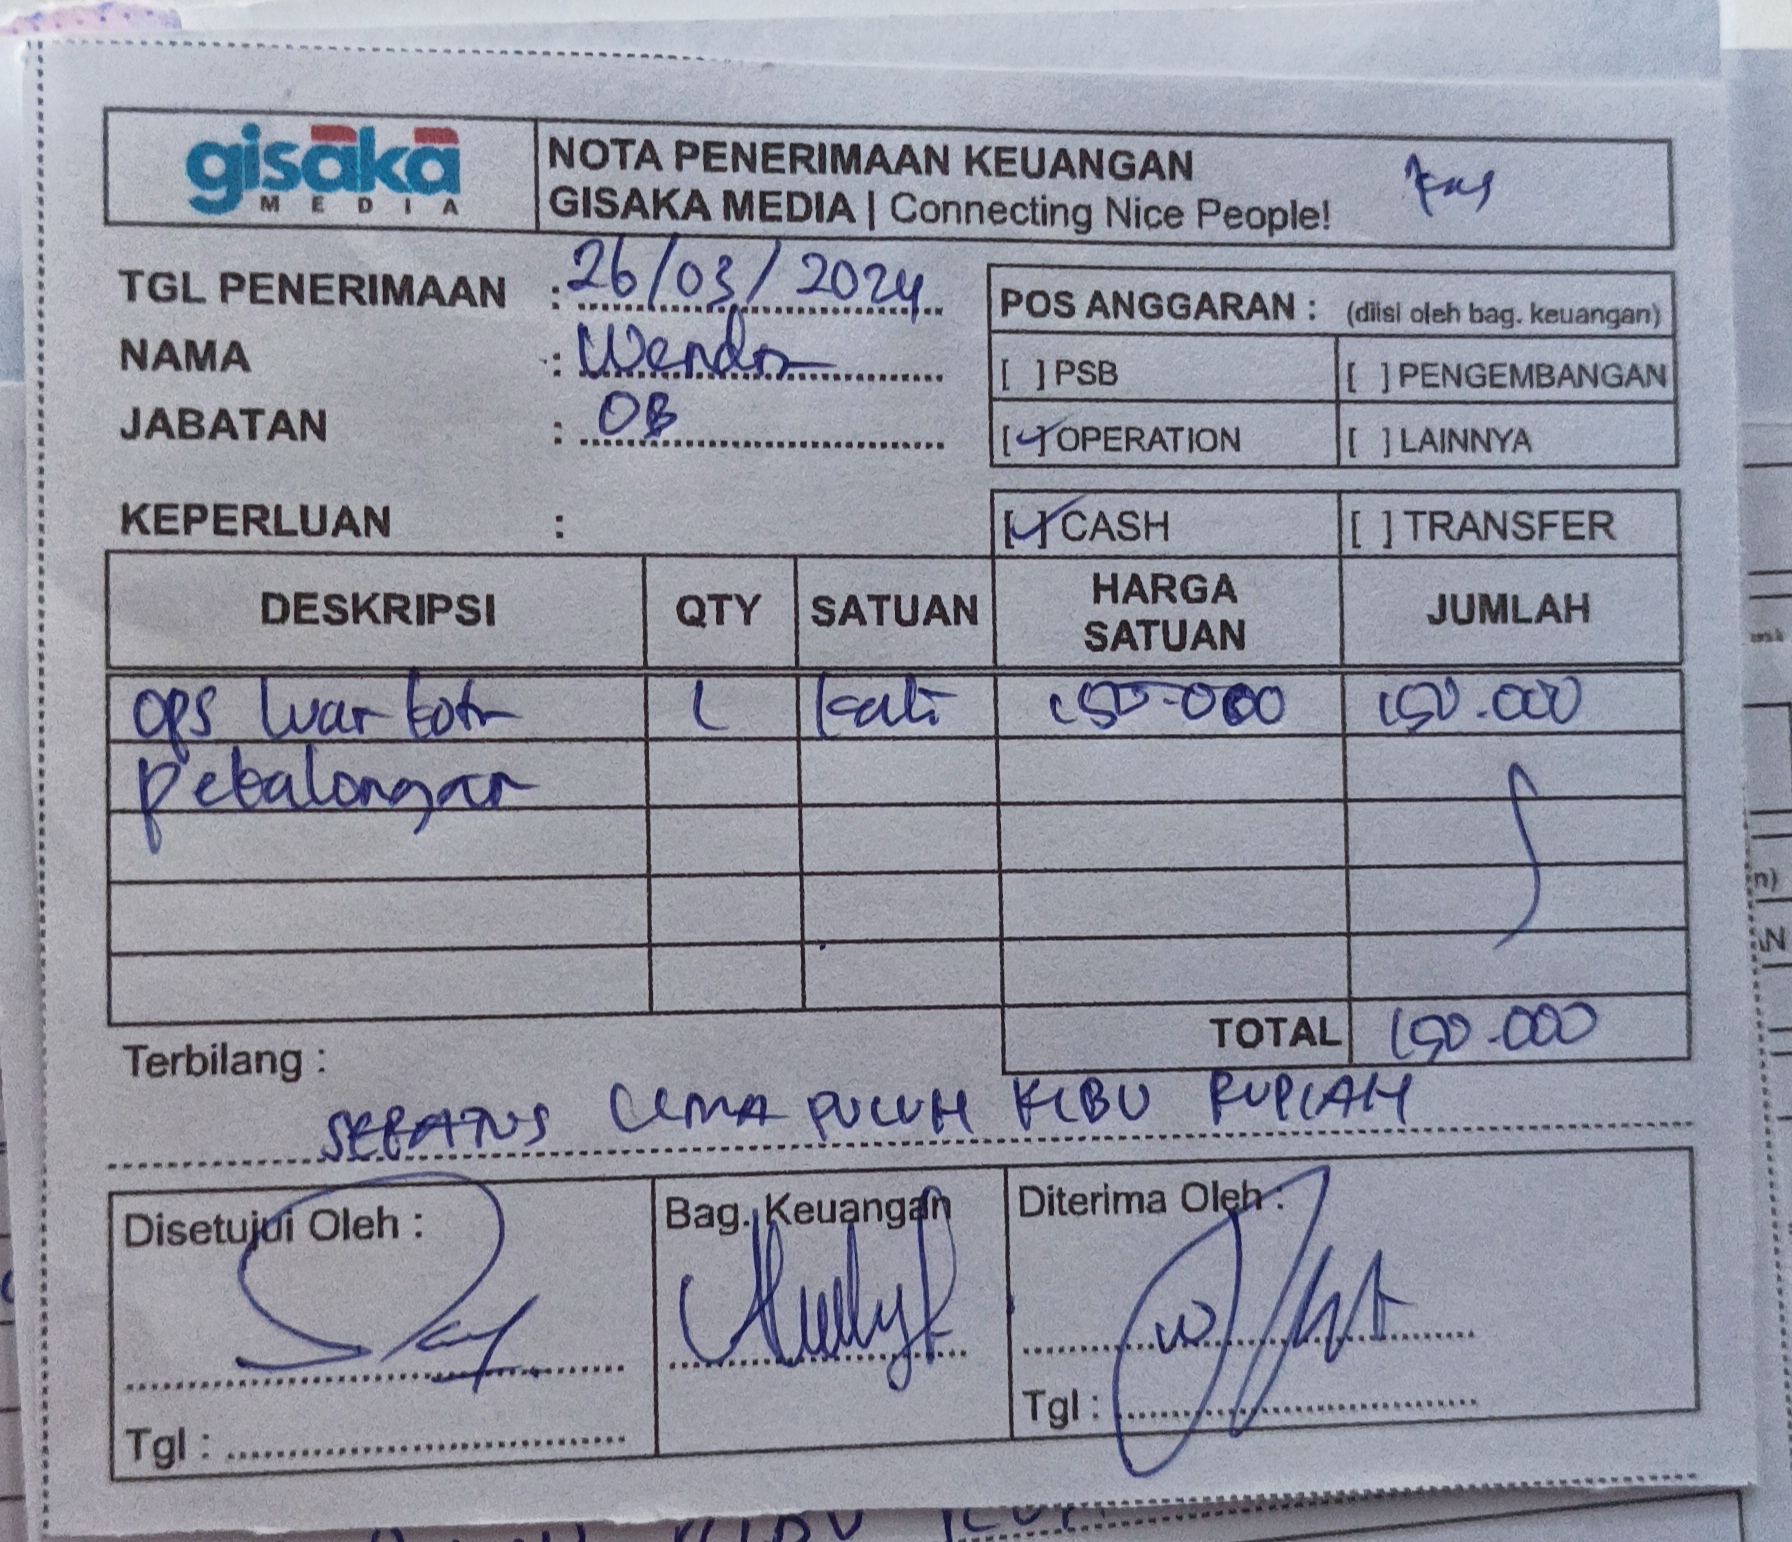 gisaka
MEDIA
NOTA PENERIMAAN KEUANGAN
GISAKA MEDIA | Connecting Nice People!
kas
TGL PENERIMAAN : 26/03/2024
NAMA : Wendo
JABATAN : OB
POS ANGGARAN : (diisi oleh bag. keuangan)
[ ] PSB [ ] PENGEMBANGAN
[✓] OPERATION [ ] LAINNYA
KEPERLUAN :
[✓] CASH [ ] TRANSFER
DESKRIPSI QTY SATUAN HARGA SATUAN JUMLAH
ops luar kota 1 kali 150.000 150.000
Pekalongan
TOTAL 150.000
Terbilang :
SERATUS LIMA PULUH RIBU RUPIAH
Disetujui Oleh :
Bag. Keuangan
Diterima Oleh :
Tgl :
Tgl :